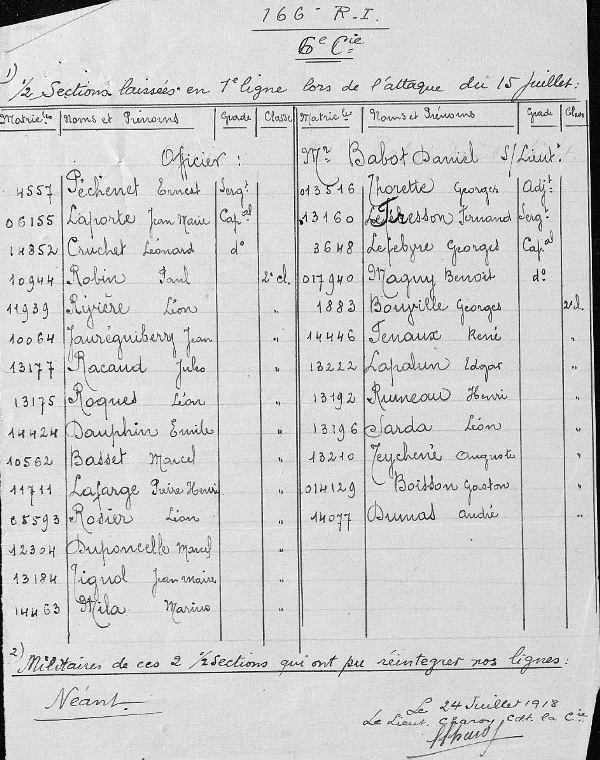 166e R.I.
6e Cie
1) 1/2 Sections laissées en 1e ligne lors de l'attaque du 15 Juillet:
Matricles Noms et Prénoms Grade Classe Matric les Noms et Prénoms Grade Class
Officier: Mr Babot Daniel S/Lieut.
4557 Péchenet Ernest Sergt 013516 Thorette Georges Adjt
06155 Laporte Jean Marie Capal 13160 Teresson Fernand Sergt
14852 Cruchet Léonard do 3648 Lefebvre Georges Cap.al
10944 Robin Paul 2e cl. 017940 Magny Benoit do
11939 Rivière Léon " 1883 Bouville Georges 2e cl.
10064 Jauréguiberry Jean " 14446 Tenaux René "
13177 Racaud Jules " 13222 Lapalun Edgar "
13175 Roques Léon " 13192 Ruineau Henri "
14424 Dauphin Emile " 13196 Sarda Léon "
10562 Basset Marcel " 13210 Teychené Auguste "
11711 Lafarge Pierre Henri " 014129 Boisson Gaston "
08593 Rosier Léon " 14077 Dumas André "
12304 Duponcelle Marcel "
13184 Tignol Jean Marie "
14463 Mila Marius "
2) Militaires de ces 2 1/2 Sections qui ont pu réintegrer nos lignes:
Néant.
Le 24 Juillet 1918
Le Lieut. Charoy Cdt. la Cie